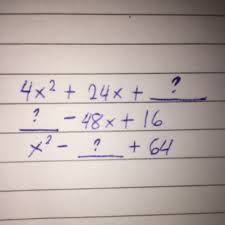 4x² + 24x + ?
? - 48x + 16
x² - ? + 64